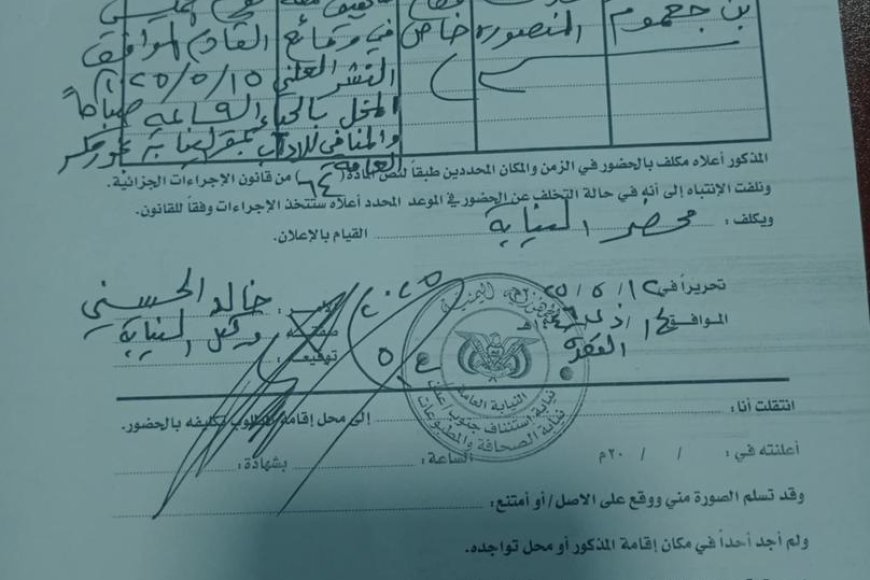 بن جعموم
المنصورة
خاص
في وقائع
النشر العلني
المخل بالحياء
والمنافي للآداب
العامة
القادم الموافق
٢٠٢٥/٥/١٥
صباحاً
المذكور أعلاه مكلف بالحضور في الزمن والمكان المحددين طبقاً لنص المادة (٦٤) من قانون الإجراءات الجزائية.
ونلفت الإنتباه إلى أنه في حالة التخلف عن الحضور في الموعد المحدد أعلاه ستتخذ الإجراءات وفقاً للقانون.
ويكلف : محضر النيابة القيام بالإعلان.
تحريراً في ١٢ / ٥ / ٢٥
الموافق ١٤ / ذي
القعدة
خالد الحسني
وكيل النيابة
صفته :
توقيعه :
٢٠٢٥
النيابة العامة
نيابة استئناف جنوب عدن
نيابة الصحافة والمطبوعات
انتقلت أنا : إلى محل إقامة المطلوب تكليفه بالحضور.
أعلنته في : / / ٢٠م الساعة : بشهادة :
وقد تسلم الصورة مني ووقع على الاصل/ أو أمتنع :
ولم أجد أحداً في مكان إقامة المذكور أو محل تواجده.